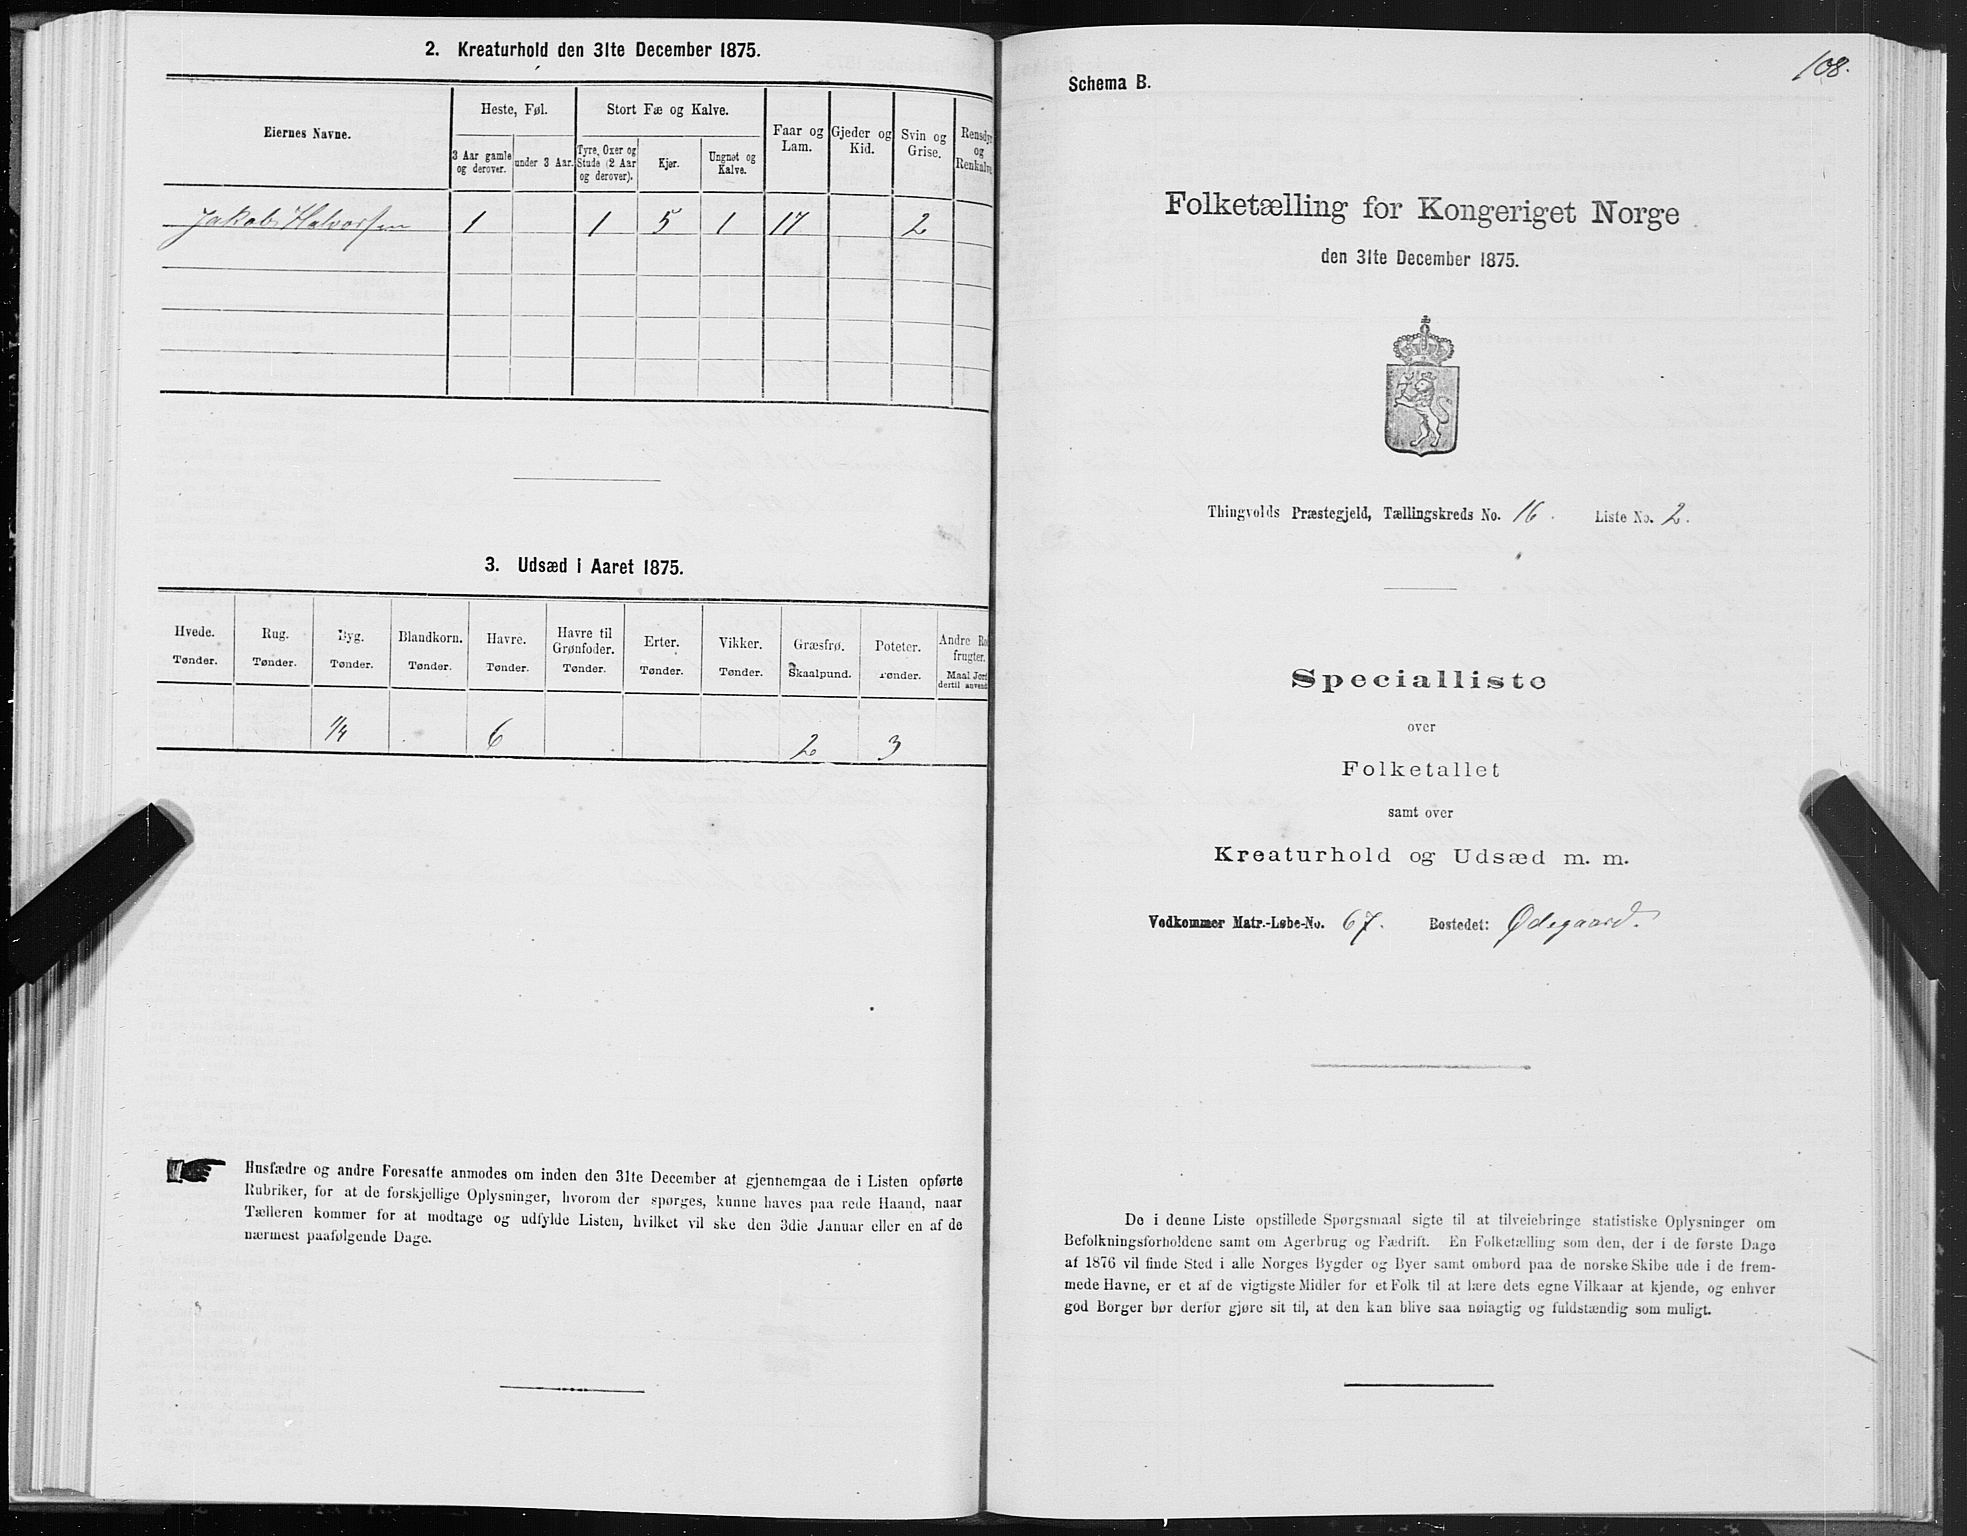 2. Kreaturhold den 31te December 1875.
Eiernes Navne.
Heste, Føl.
3 Aar gamle og derover.
under 3 Aar.
Stort Fæ og Kalve.
Tyre, Oxer og Stude (2 Aar og derover).
Kjør.
Ungnøt og Kalve.
Faar og Lam.
Gjeder og Kid.
Svin og Grise.
Rensdyr og Renkalve.
Jakob Halvorsen 1 1 5 1 17 2
3. Udsæd i Aaret 1875.
Hvede. Rug. Byg. Blandkorn. Havre. Havre til Grønfoder. Erter. Vikker. Græsfrø. Poteter. Andre Ro frugter.
Tønder. Tønder. Tønder. Tønder. Tønder. Tønder. Tønder. Tønder. Skaalpund. Tønder. Maal Jord dertil anvend
1/4 6 2 3
Husfædre og andre Foresatte anmodes om inden den 31te December at gjennemgaa de i Listen opførte
Rubriker, for at de forskjellige Oplysninger, hvorom der spørges, kunne haves paa rede Haand, naar
Tælleren kommer for at modtage og udfylde Listen, hvilket vil ske den 3die Januar eller en af de
nærmest paafølgende Dage.
108.
Schema B.
Folketælling for Kongeriget Norge
den 31te December 1875.
Thingvolds Præstegjeld, Tællingskreds No. 16. Liste No. 2.
Specialliste
over
Folketallet
samt over
Kreaturhold og Udsæd m. m.
Vedkommer Matr.-Løbe-No. 67. Bostedet: Ødegaard.
De i denne Liste opstillede Spørgsmaal sigte til at tilveiebringe statistiske Oplysninger om
Befolkningsforholdene samt om Agerbrug og Fædrift. En Folketælling som den, der i de første Dage
af 1876 vil finde Sted i alle Norges Bygder og Byer samt ombord paa de norske Skibe ude i de frem-
mede Havne, er et af de vigtigste Midler for et Folk til at lære dets egne Vilkaar at kjende, og enhver
god Borger bør derfor gjøre sit til, at den kan blive saa nøiagtig og fuldstændig som muligt.